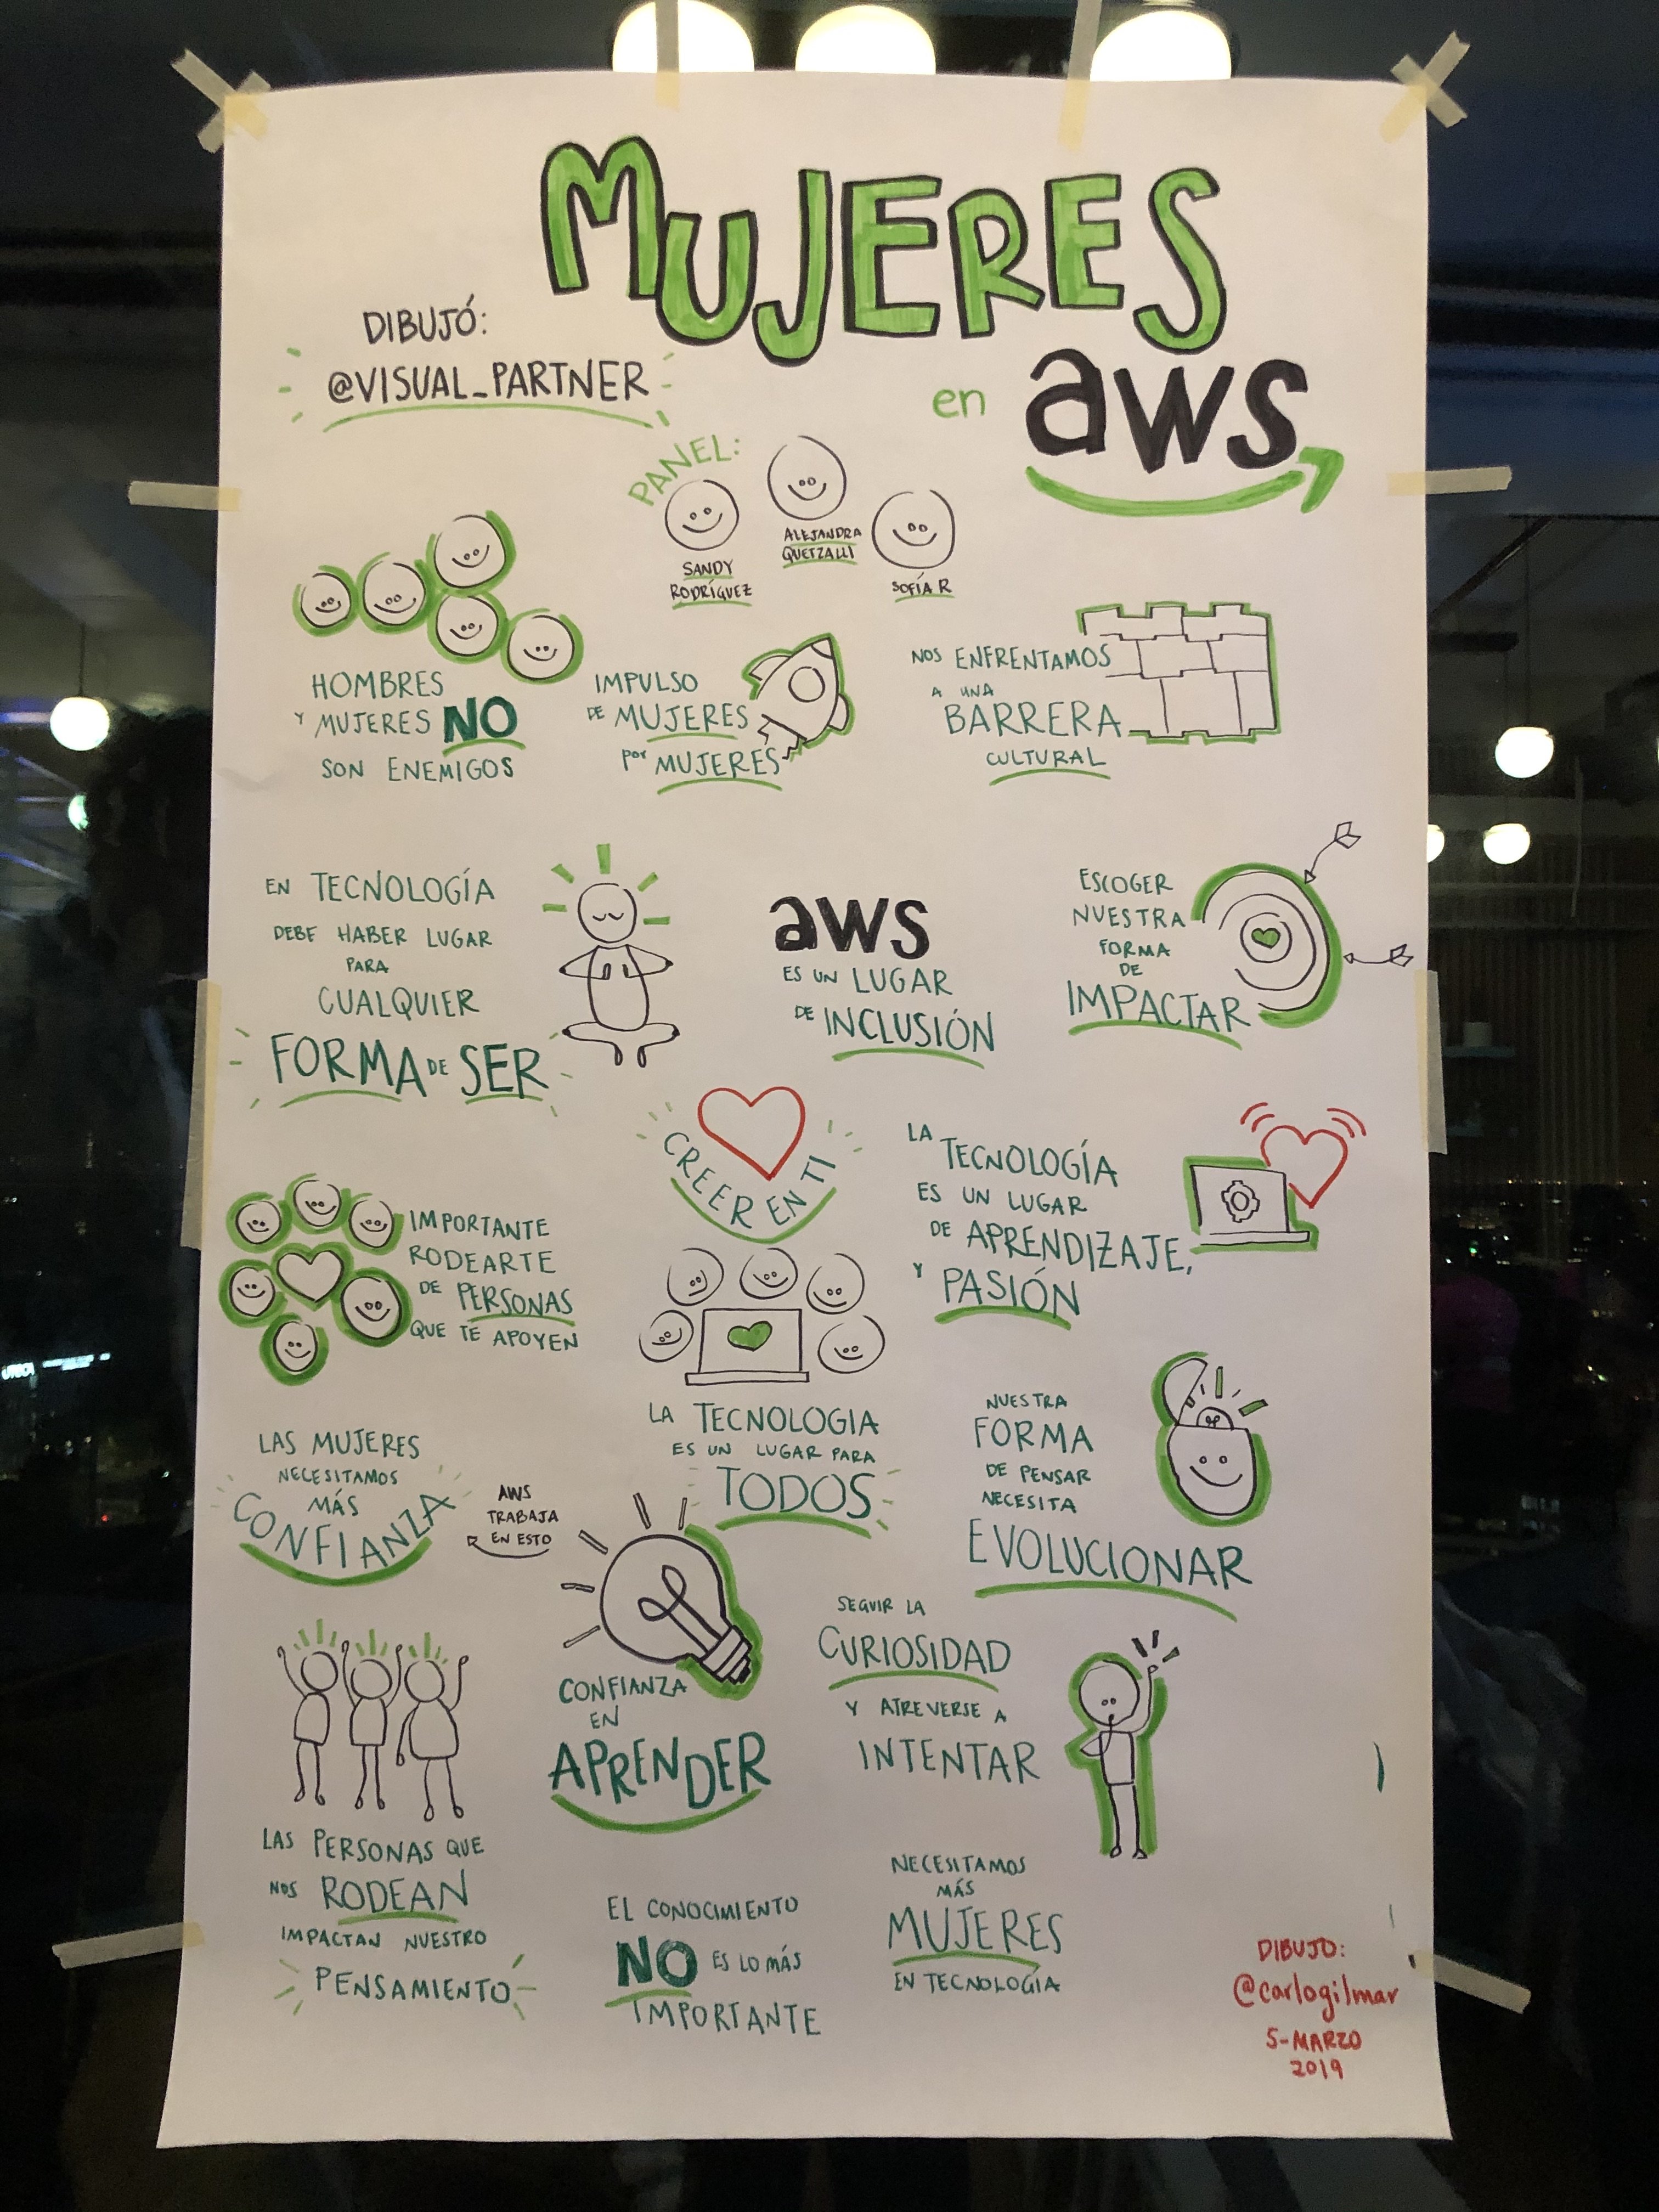 MUJERES
en aws
DIBUJÓ:
@VISUAL_PARTNER
PANEL:
SANDY
RODRÍGUEZ
ALEJANDRA
QUETZALLI
SOFÍA R
HOMBRES
Y MUJERES NO
SON ENEMIGOS
IMPULSO
DE MUJERES
POR MUJERES
NOS ENFRENTAMOS
A UNA
BARRERA
CULTURAL
EN TECNOLOGÍA
DEBE HABER LUGAR
PARA
CUALQUIER
FORMA DE SER
aws
ES UN LUGAR
DE INCLUSIÓN
ESCOGER
NUESTRA
FORMA
DE
IMPACTAR
CREER EN TI
LA
TECNOLOGÍA
ES UN LUGAR
DE APRENDIZAJE,
Y PASIÓN
IMPORTANTE
RODEARTE
DE PERSONAS
QUE TE APOYEN
LA TECNOLOGIA
ES UN LUGAR PARA
TODOS
NUESTRA
FORMA
DE PENSAR
NECESITA
EVOLUCIONAR
LAS MUJERES
NECESITAMOS
MÁS
CONFIANZA
AWS
TRABAJA
EN ESTO
CONFIANZA
EN
APRENDER
SEGUIR LA
CURIOSIDAD
Y ATREVERSE A
INTENTAR
LAS PERSONAS QUE
NOS RODEAN
IMPACTAN NUESTRO
PENSAMIENTO
EL CONOCIMIENTO
NO ES LO MÁS
IMPORTANTE
NECESITAMOS
MÁS
MUJERES
EN TECNOLOGÍA
DIBUJO:
@carlogilmar
5-MARZO
2019